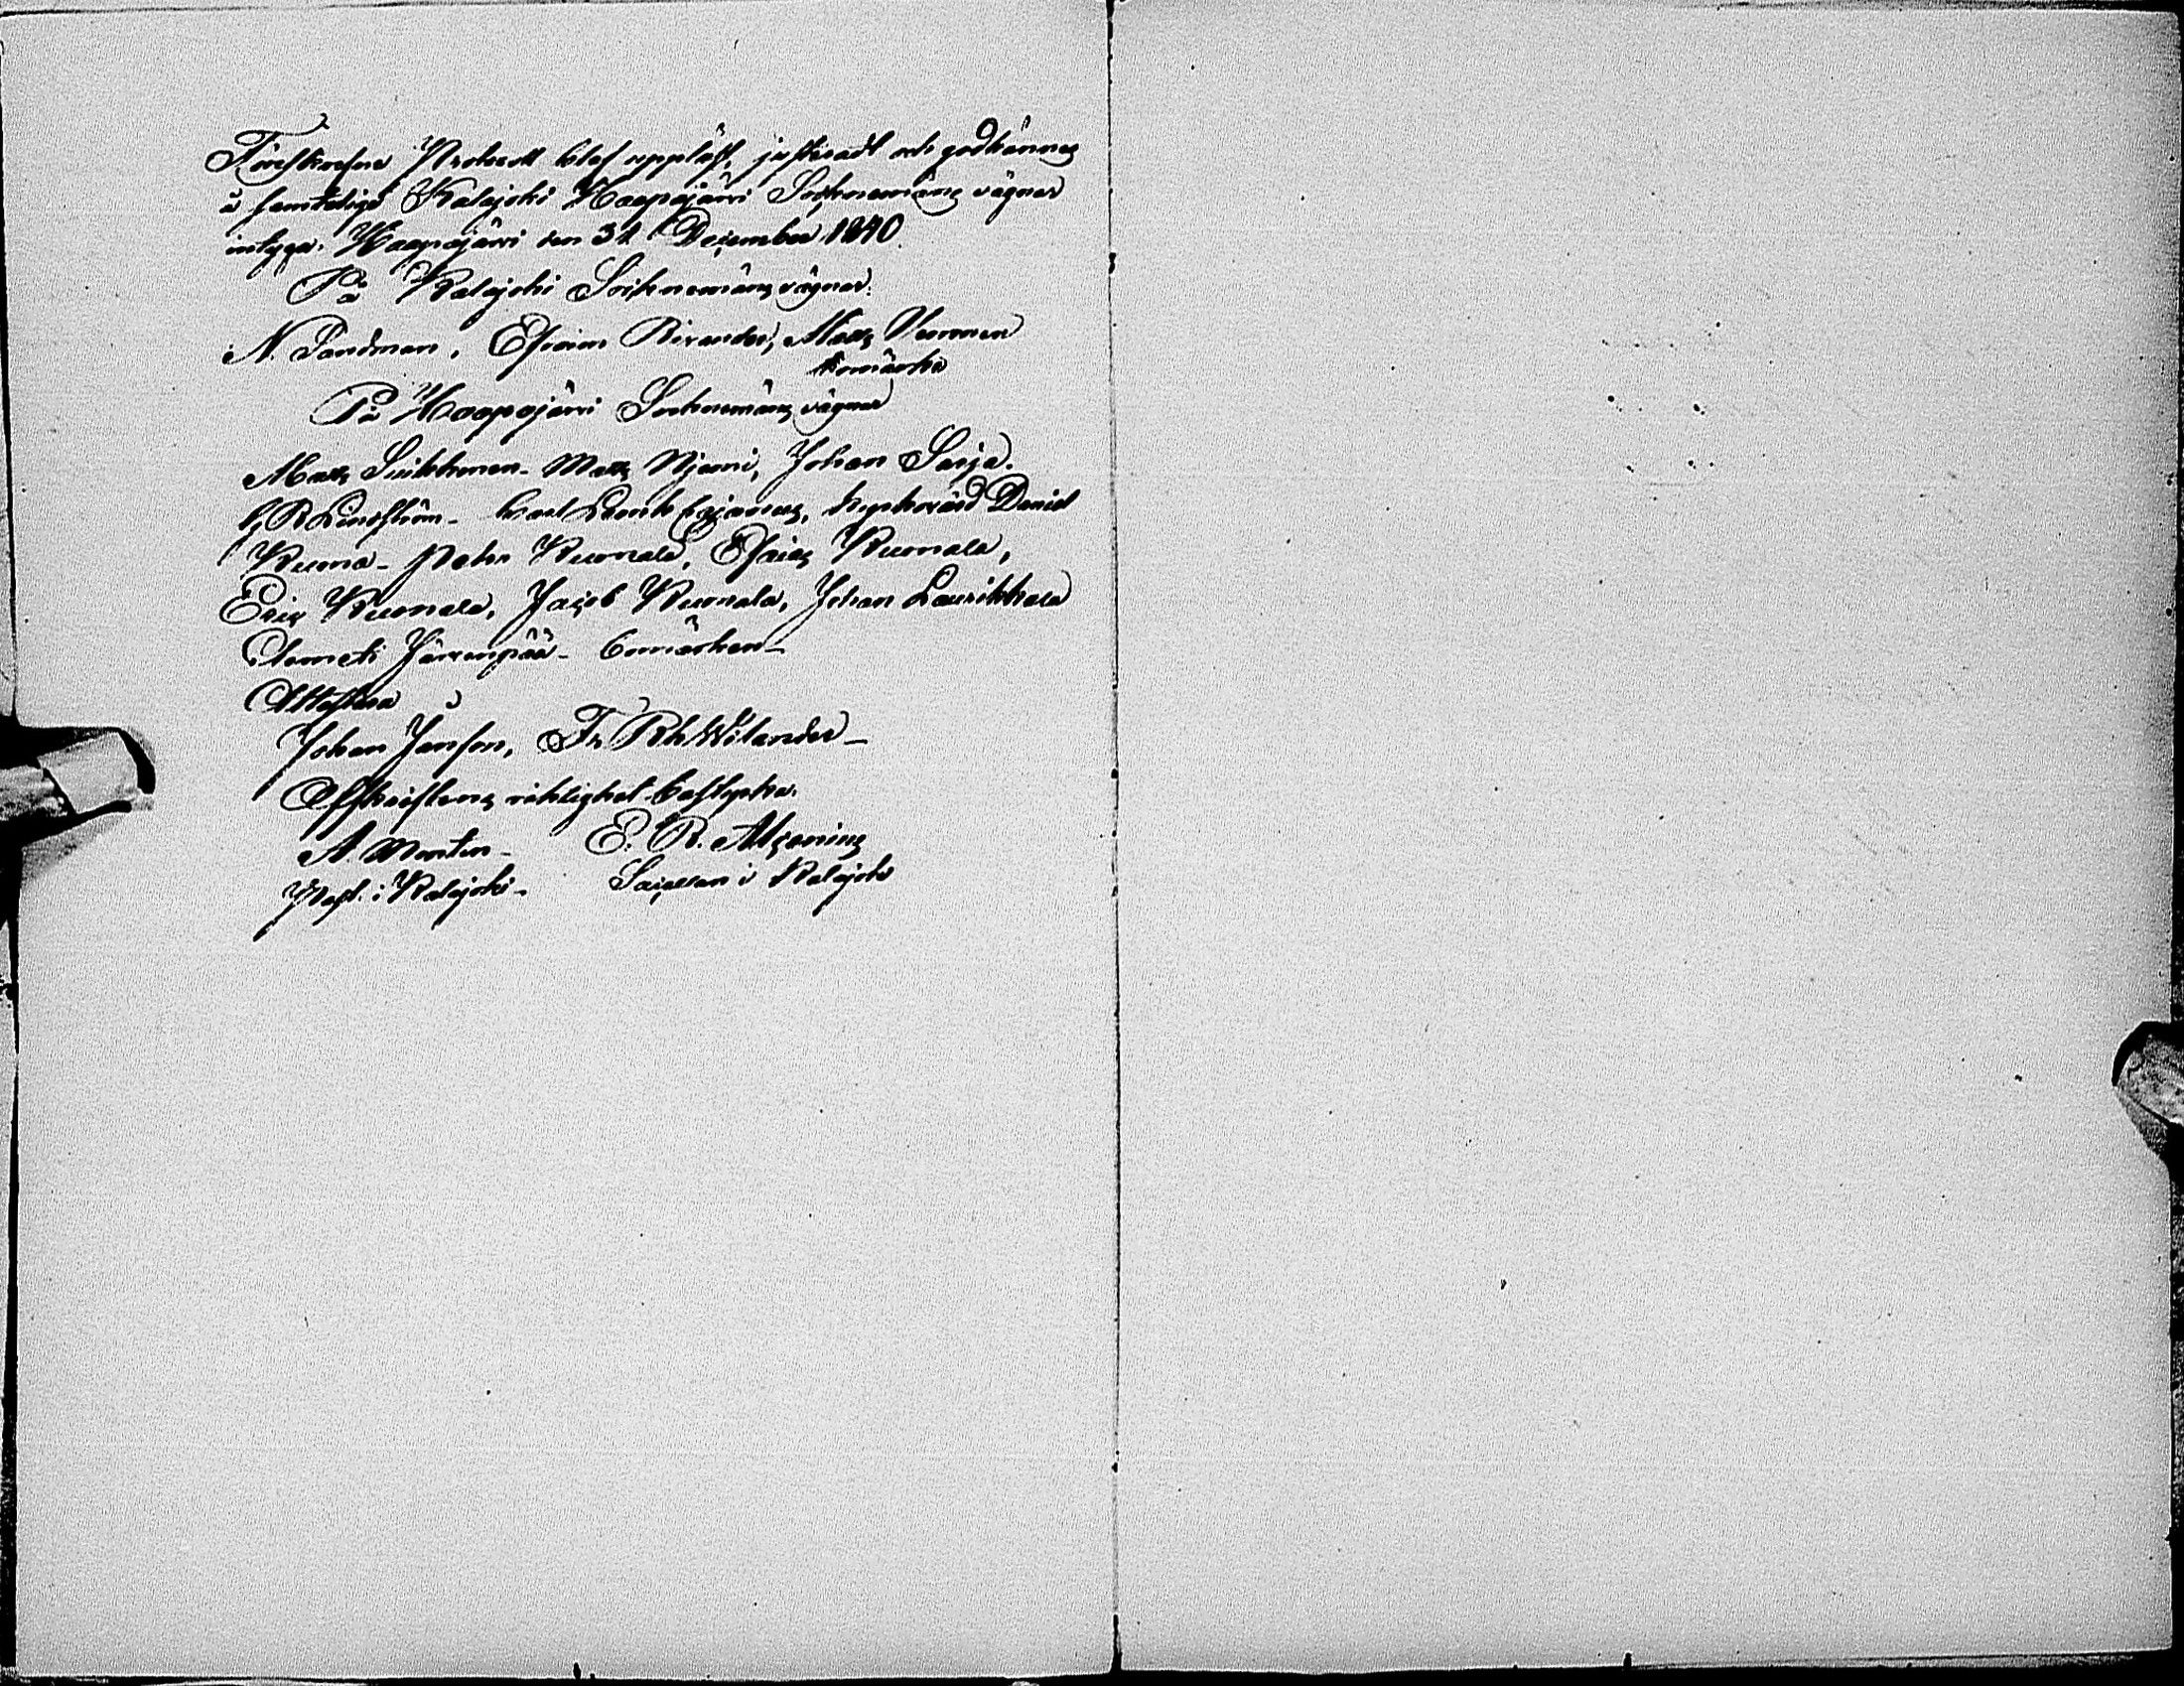 Förestående Protocoll blef uppläst, justeradt och godkännes
å samtelige Kalajoki Haapajärvi Socknemäns vägnar
intyga. Haapajärvi den 31 December 1840.
På Kalajoki Socknemäns vägnar:
N. Sandman, Efraim Birander, Matts
bomärke
På Haapajärvi Socknemäns vägnar
Matts Suikkonen - Matts Njemi, Johan Sarja.
G R Lindström - Carl Cajanus, Nämd Daniel
Kuona - Petter Kuonala, Esaias Kuonala,
Eric Kuonala, Jacob Kuonala, Johan Laurikkala
Clemeti Järvenpää - bomärken -
Attestera
Johan Janson, Fr Wilander -
Afskriftens riktighet bestyrka.
A Montin - E. R. Alcenius
Past. i Kalajoki - Sacellan i Kalajoki